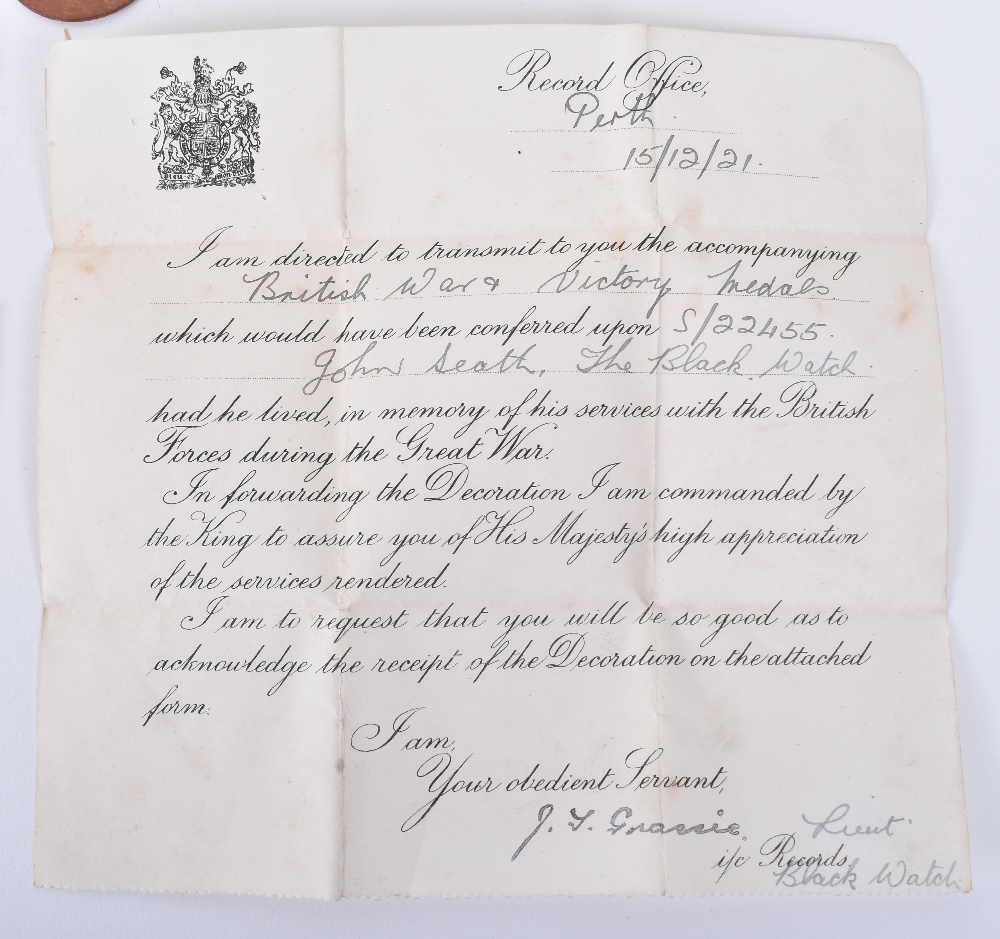 Record Office,
Perth.
15/12/21.
I am directed to transmit to you the accompanying
British War & Victory Medals
which would have been conferred upon S/22455.
John Seath, The Black Watch.
had he lived, in memory of his services with the British
Forces during the Great War.
In forwarding the Decoration I am commanded by
the King to assure you of His Majesty's high appreciation
of the services rendered.
I am to request that you will be so good as to
acknowledge the receipt of the Decoration on the attached
form.
I am,
Your obedient Servant,
J. Y. Grassie. Lieut.
i/c Records,
Black Watch.